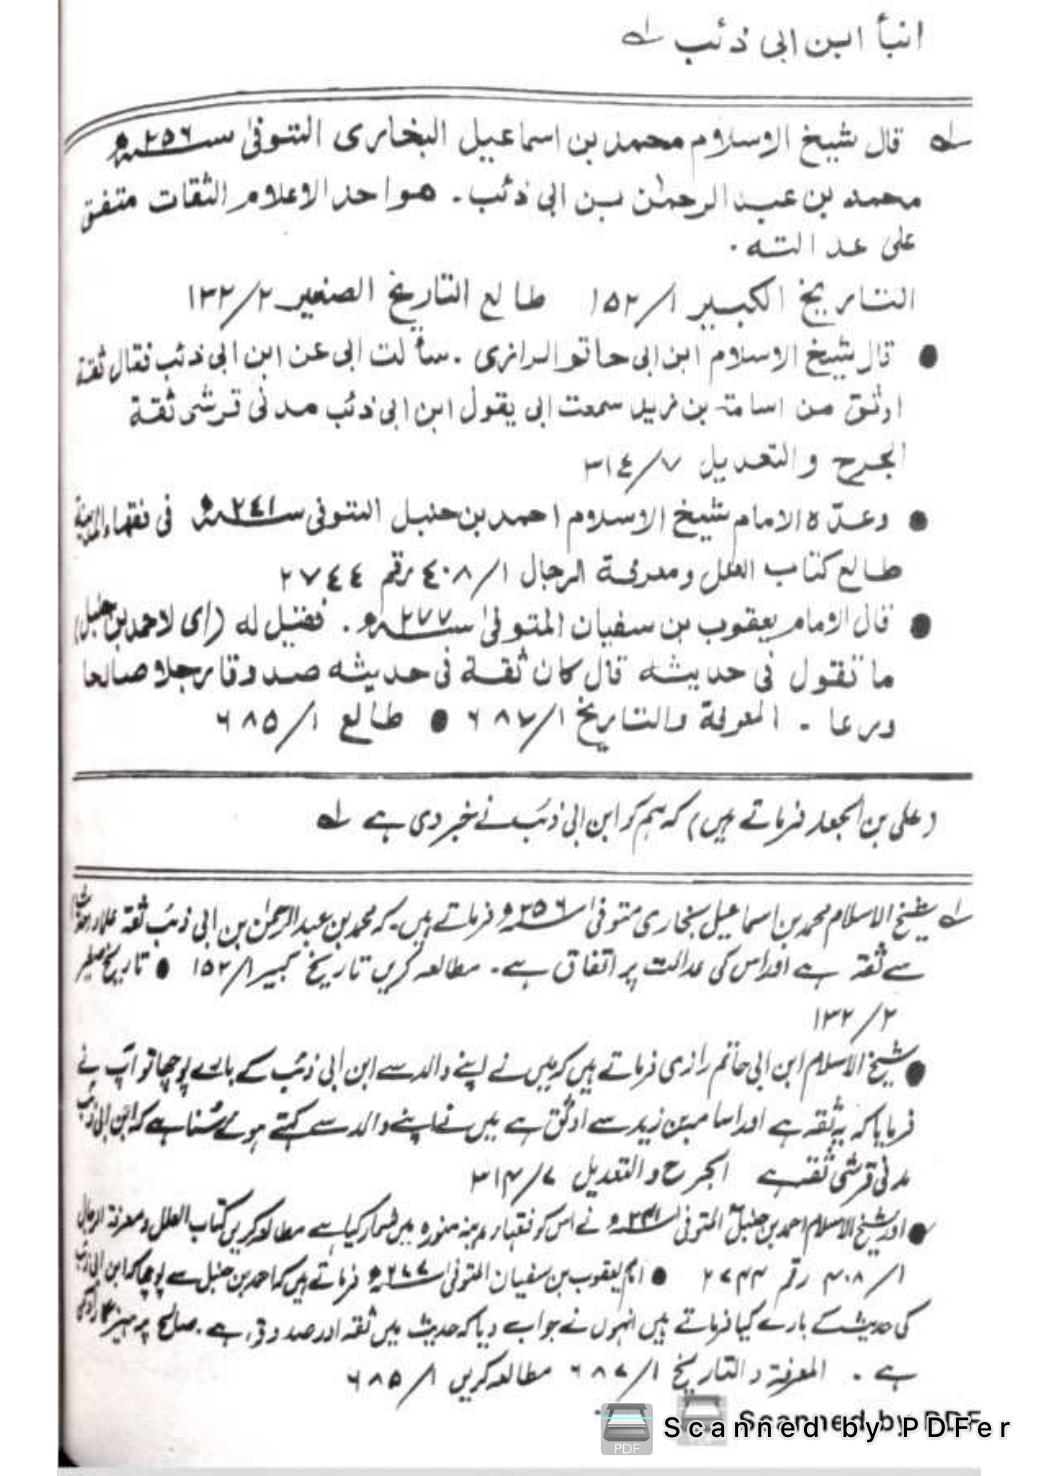 انبأ ابن ابی ذئب ؎۱
؎۱ قال شیخ الاسلام محمد بن اسماعیل البخاری المتوفیٰ سنہ ۲۵۶ھ
محمد بن عبد الرحمٰن بن ابی ذئب۔ ھو احد الاعلام الثقات متفق
علی عدالتہ۔
التاریخ الکبیر ۱/۱۵۲ طالع التاریخ الصغیر ۲/۱۳۲
● قال شیخ الاسلام ابن ابی حاتم الرازی۔ سألت ابی عن ابن ابی ذئب فقال ثقۃ
اوثق من اسامۃ بن زید سمعت ابی یقول ابن ابی ذئب مدنی قرشی ثقۃ
الجرح والتعدیل ۷/۳۱٤
● وعدّہ الامام شیخ الاسلام احمد بن حنبل المتوفی سنہ ۲٤۱ھ فی فقہاء المدینۃ
طالع کتاب العلل ومعرفۃ الرجال ۱/٤۰۸ رقم ۲۷٤٤
● قال الامام یعقوب بن سفیان المتوفیٰ سنہ ۲۷۷ھ۔ فقیل لہ (ای لاحمد بن حنبل)
ما تقول فی حدیثہ قال کان ثقۃ فی حدیثہ صدوقا رجلا صالحا
ورعا۔ المعرفۃ والتاریخ ۱/۶۸۷ ● طالع ۱/۶۸۵
(علی بن الجعد فرماتے ہیں) کہ ہم کو ابن ابی ذئب نے خبر دی ہے ؎۱
؎۱ شیخ الاسلام محمد بن اسماعیل بخاری متوفی سنہ ۲۵۶ھ فرماتے ہیں۔ کہ محمد بن عبد الرحمٰن بن ابی ذئب ثقہ علماء
سے ثقہ ہے اور اس کی عدالت پر اتفاق ہے۔ مطالعہ کریں تاریخ کبیر ۱/۱۵۲ ● تاریخ صغیر
۲/۱۳۲
● شیخ الاسلام ابن ابی حاتم رازی فرماتے ہیں کہ میں نے اپنے والد سے ابن ابی ذئب کے بارے پوچھا تو آپ نے
فرمایا کہ یہ ثقہ ہے اور اسامہ بن زید سے اوثق ہے میں نے اپنے والد سے کہتے ہوئے سُنا ہے کہ ابن ابی ذئب
مدنی قرشی ثقہ ہے الجرح والتعدیل ۷/۳۱۴
● اور شیخ الاسلام احمد بن حنبل المتوفی سنہ ۲۴۱ھ نے اس کو فقہاء مدینہ منورہ میں شمار کیا ہے مطالعہ کریں کتاب العلل ومعرفۃ الرجال
۱/۴۰۸ رقم ۲۷۴۴ ● امام یعقوب بن سفیان المتوفی سنہ ۲۷۷ھ فرماتے ہیں کہ احمد بن حنبل سے پوچھا کہ ابن ابی ذئب
کی حدیث کے بارے کیا فرماتے ہیں انہوں نے جواب دیا کہ حدیث میں ثقہ اور صدوق ہے۔ صالح پرہیزگار آدمی
ہے۔ المعرفۃ والتاریخ ۱/۶۸۷ مطالعہ کریں ۱/۶۸۵
Scanned by PDFer
Scanned by PDFer